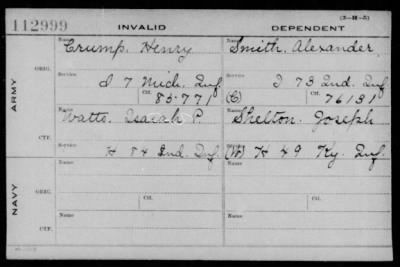 (3-H-5)
112999 INVALID DEPENDENT
Name Name
Crump, Henry Smith, Alexander
ORIG.
Service Service
I 7 Mich. Inf. I 73 Ind. Inf.
Ctf. Ctf.
83.771 (C) 76131
ARMY
Name Name
Watts, Isaiah P. Shelton, Joseph
CTF.
Service Service
H 84 Ind. Inf. (W) H 49 Ky. Inf.
NAVY
ORIG.
Name Ctf. Name Ctf.
CTF.
Name Name